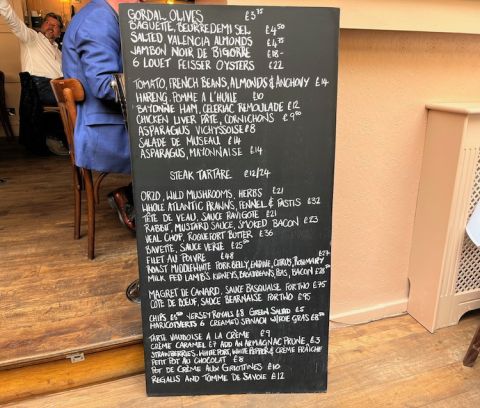 GORDAL OLIVES £3.75
BAGUETTE, BEURRE DEMI SEL £4.50
SALTED VALENCIA ALMONDS £4.75
JAMBON NOIR DE BIGORRE £18-
6 LOUET FEISSER OYSTERS £22
TOMATO, FRENCH BEANS, ALMONDS & ANCHOVY £14
HARENG, POMME A L'HUILE £10
BAYONNE HAM, CELERIAC REMOULADE £12
CHICKEN LIVER PÂTE, CORNICHONS £9.00
ASPARAGUS VICHYSSOISE £8
SALADE DE MUSEAU £14
ASPARAGUS, MAYONNAISE £14
STEAK TARTARE £12/24
ORZO, WILD MUSHROOMS, HERBS £21
WHOLE ATLANTIC PRAWNS, FENNEL & PASTIS £32
TÊTE DE VEAU, SAUCE RAVIGOTE £21
RABBIT, MUSTARD SAUCE, SMOKED BACON £23
VEAL CHOP, ROQUEFORT BUTTER £36
BAVETTE, SAUCE VERTE £25.00
FILET AU POIVRE £48
ROAST MIDDLEWHITE PORK BELLY, ENDIVE, CITRUS, ROSEMARY £27
MILK FED LAMB'S KIDNEYS, BROADBEANS, PEAS, BACON £28.00
MAGRET DE CANARD, SAUCE BASQUAISE FOR TWO £75
CÔTE DE BOEUF, SAUCE BEARNAISE FOR TWO £95
CHIPS JERSEY ROYALS £8 GREEN SALAD £5
HARICOTS VERTS 6 CREAMED SPINACH W/FOIE GRAS £8.00
TARTE VAUDOISE A LA CRÈME £9
CRÈME CARAMEL £7 ADD AN ARMAGNAC PRUNE, £3
STRAWBERRIES, WHITE PORT, WHITE PEPPER & CRÈME FRAÎCHE
PETIT POT AU CHOCOLAT £8
POT DE CRÈME AUX GRIOTTINES £10
REGALIS AND TOMME DE SAVOIE £12